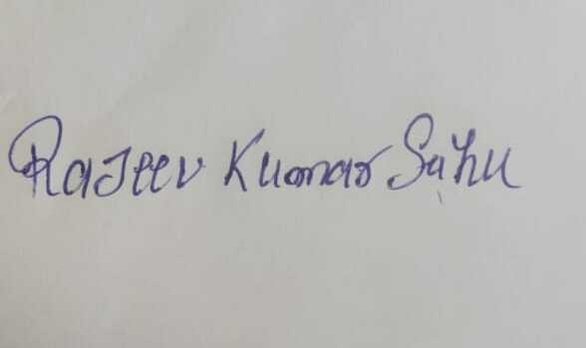 Rajeev Kumar Sahu